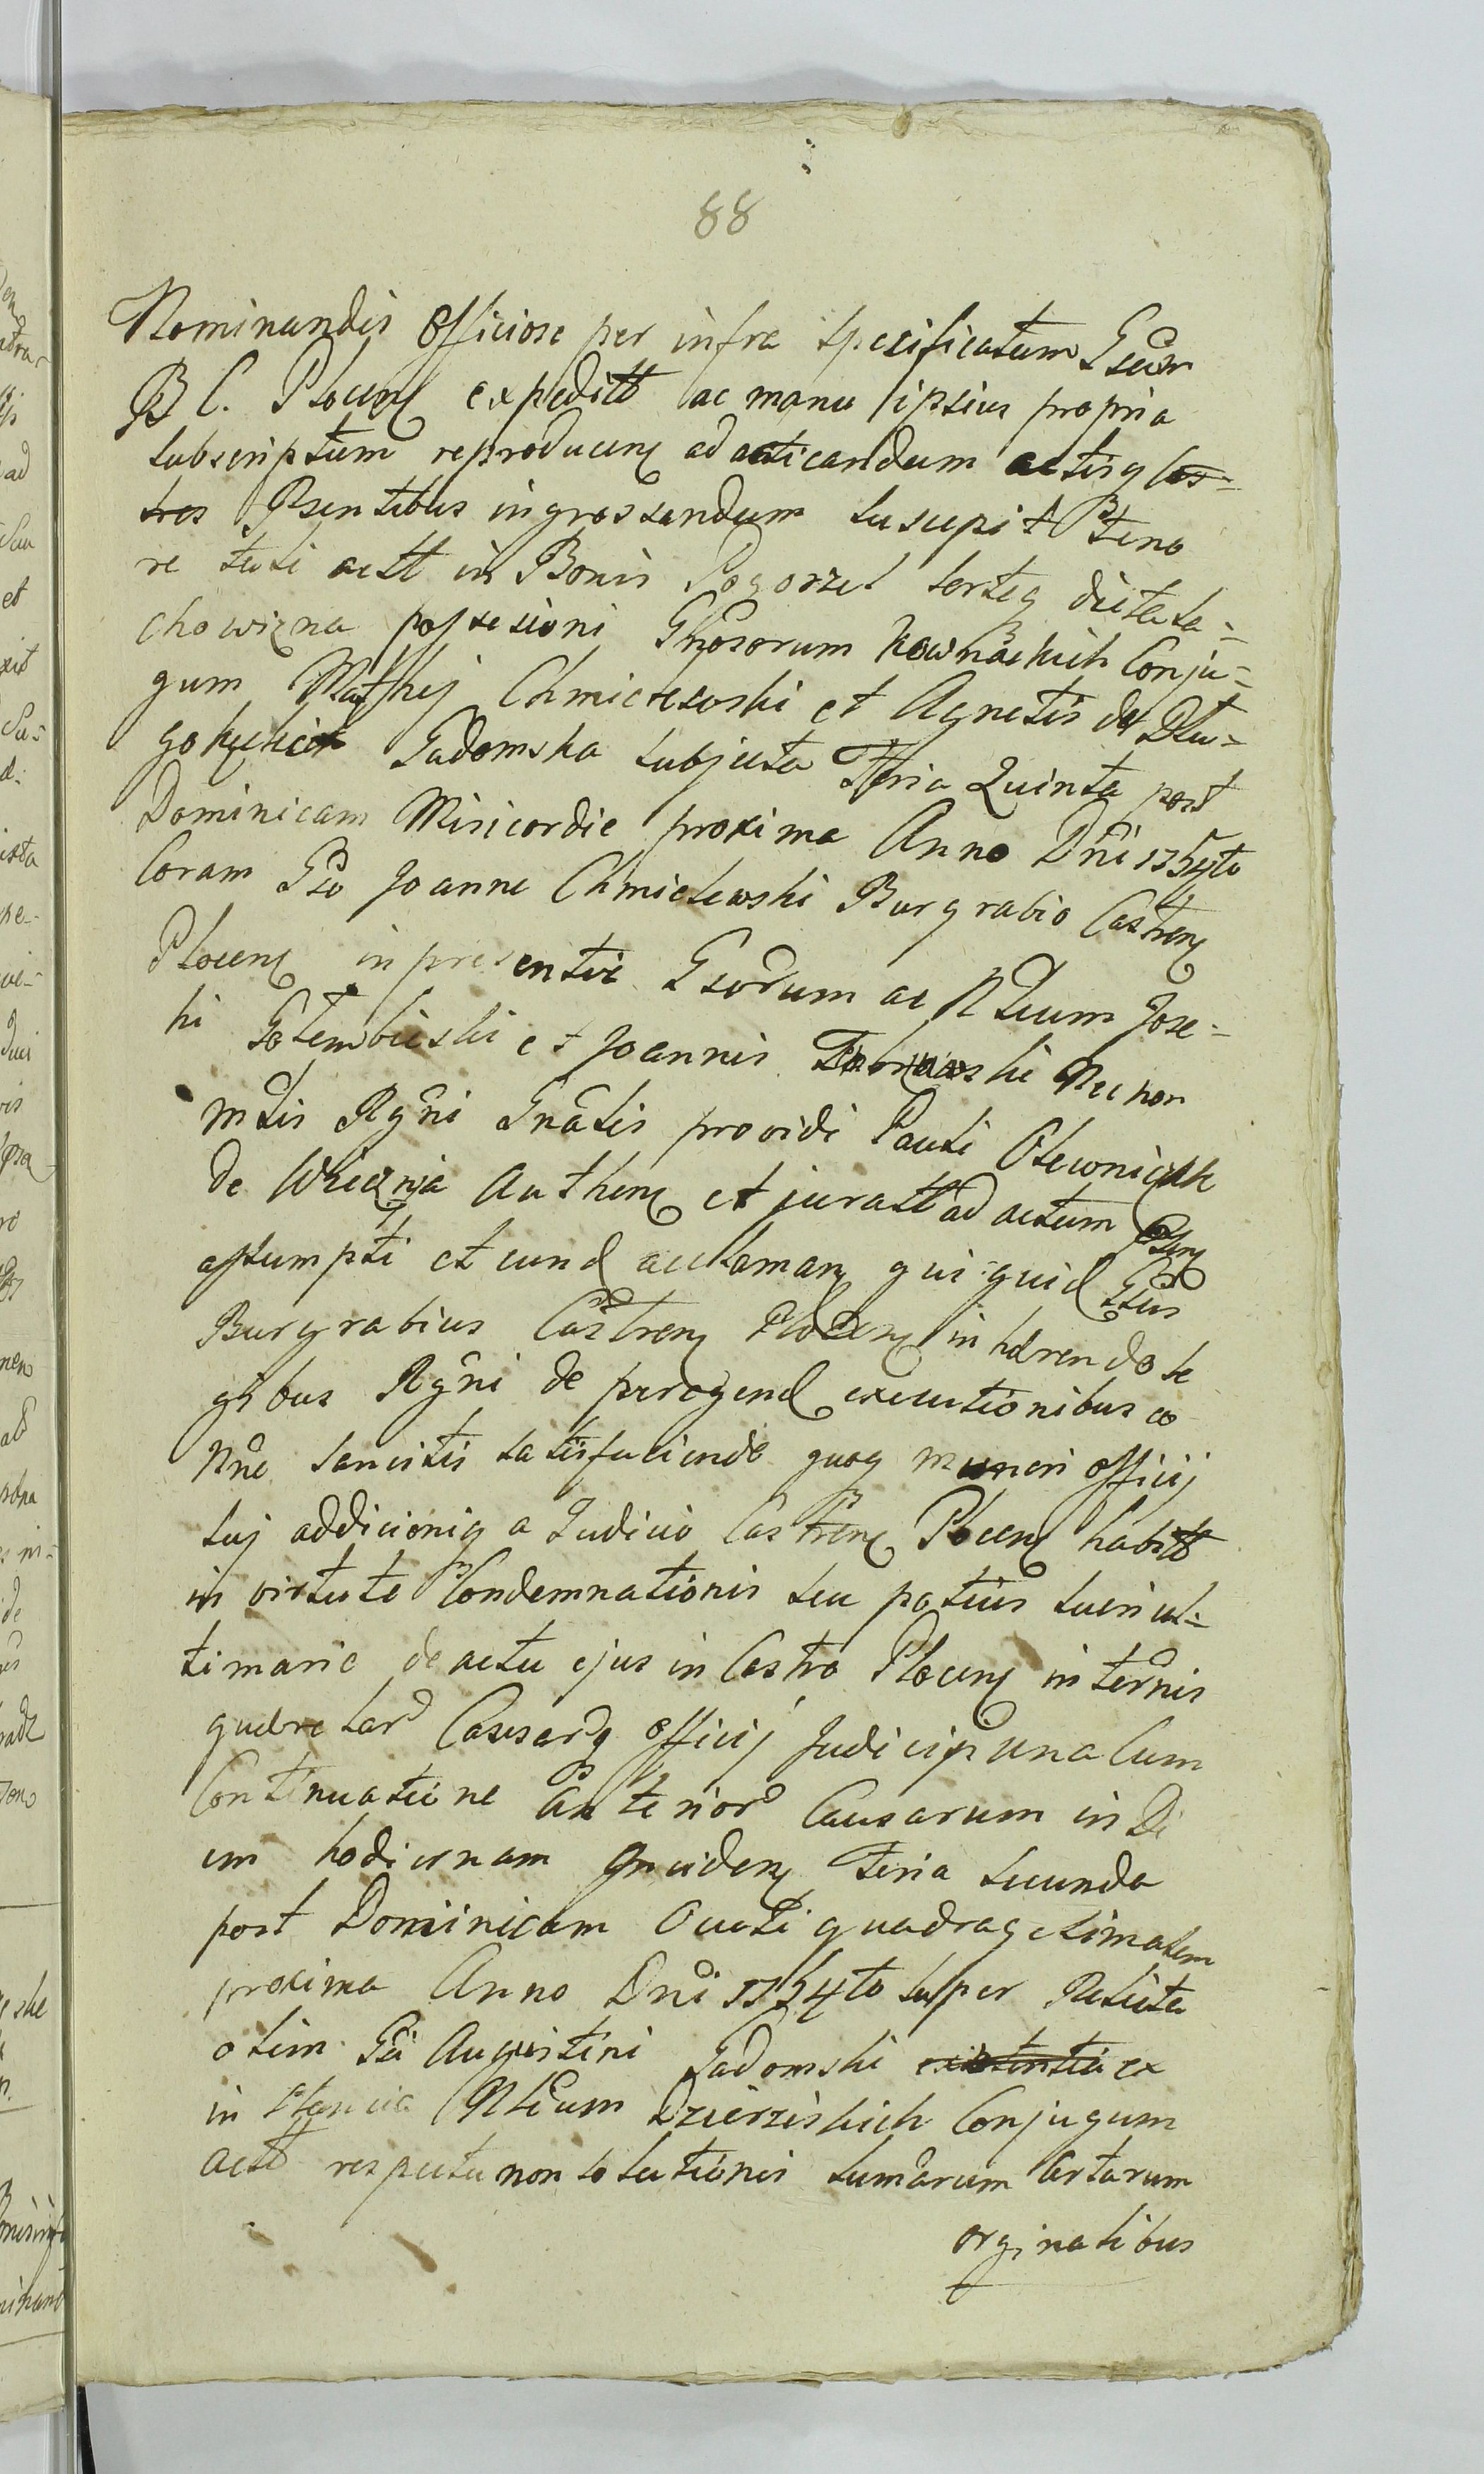 88
Nominandis Officiose per infra specificatum Gsum
B C. Plocens expeditt ac manu ipsius propria
subscriptum reproducens ad acticandum actisq cas-
tres Psentibus ingrossandum suscepit Teno
re tali actt in Bonis Pogorzel sorteq dicta La=
chowizna possesioni Ghosorum Kownackich Conju=
gum Mathej Chmielewski et Agnetis de Dłu=
Gadomska subjecta Feria Quinta post
Dominicam Misicordie proxima Anno Dni 1754to
Coram Gso Joanne Chmielewski Burgrabio Castrens
Plocens in presentia Gsorum ac Nlium Jose=
hi Gołembieski et Joannis Nec non
Mtlis Rgni Gnalis providi Pauli
de Authens et juratt ad actum Psens
assumpti et eund acclamans qui quid Gsus
Burgrabius Castrens Plocens in hærendo le
gibus Rgni de peragend executionibus co
Nne sancitis satisfaciende quoq muneri officij
suj addicioniq a Judicio Castrens Plocens habitt
in virtute Condemnationis seu potius
timarie de actu ejus in Castro Plocens in termis
querelar Causarq officij Judicijq una cum
Continuatione Anterior Causarum in Di
em hodiernam incidens Feria secunda
post Dominicam Oculi quadragesimalem
proxima Anno Dni 1754to super Relicta
olim Gsi Augustini Gadomski ex
in stancia Nlium Dzierziskich Conjugum
actt respectu non solutionis sumarum certarum
orginalibus